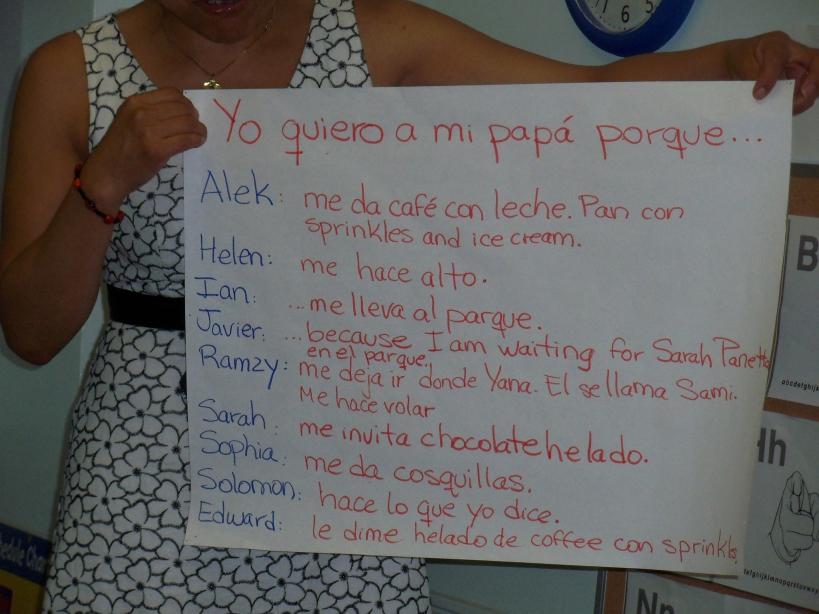 Yo quiero a mi papá porque...
Alek: me da café con leche. Pan con
sprinkles and ice cream.
Helen: me hace alto.
Ian: ...me lleva al parque.
Javier: ...because I am waiting for Sarah Panetta
en el parque.
Ramzy: me deja ir donde Yana. El se llama Sami.
Me hace volar
Sarah: me invita chocolate helado.
Sophia: me da cosquillas.
Solomon: hace lo que yo dice.
Edward: le dime helado de coffee con sprinkls
6
7
B
Hh
Nn